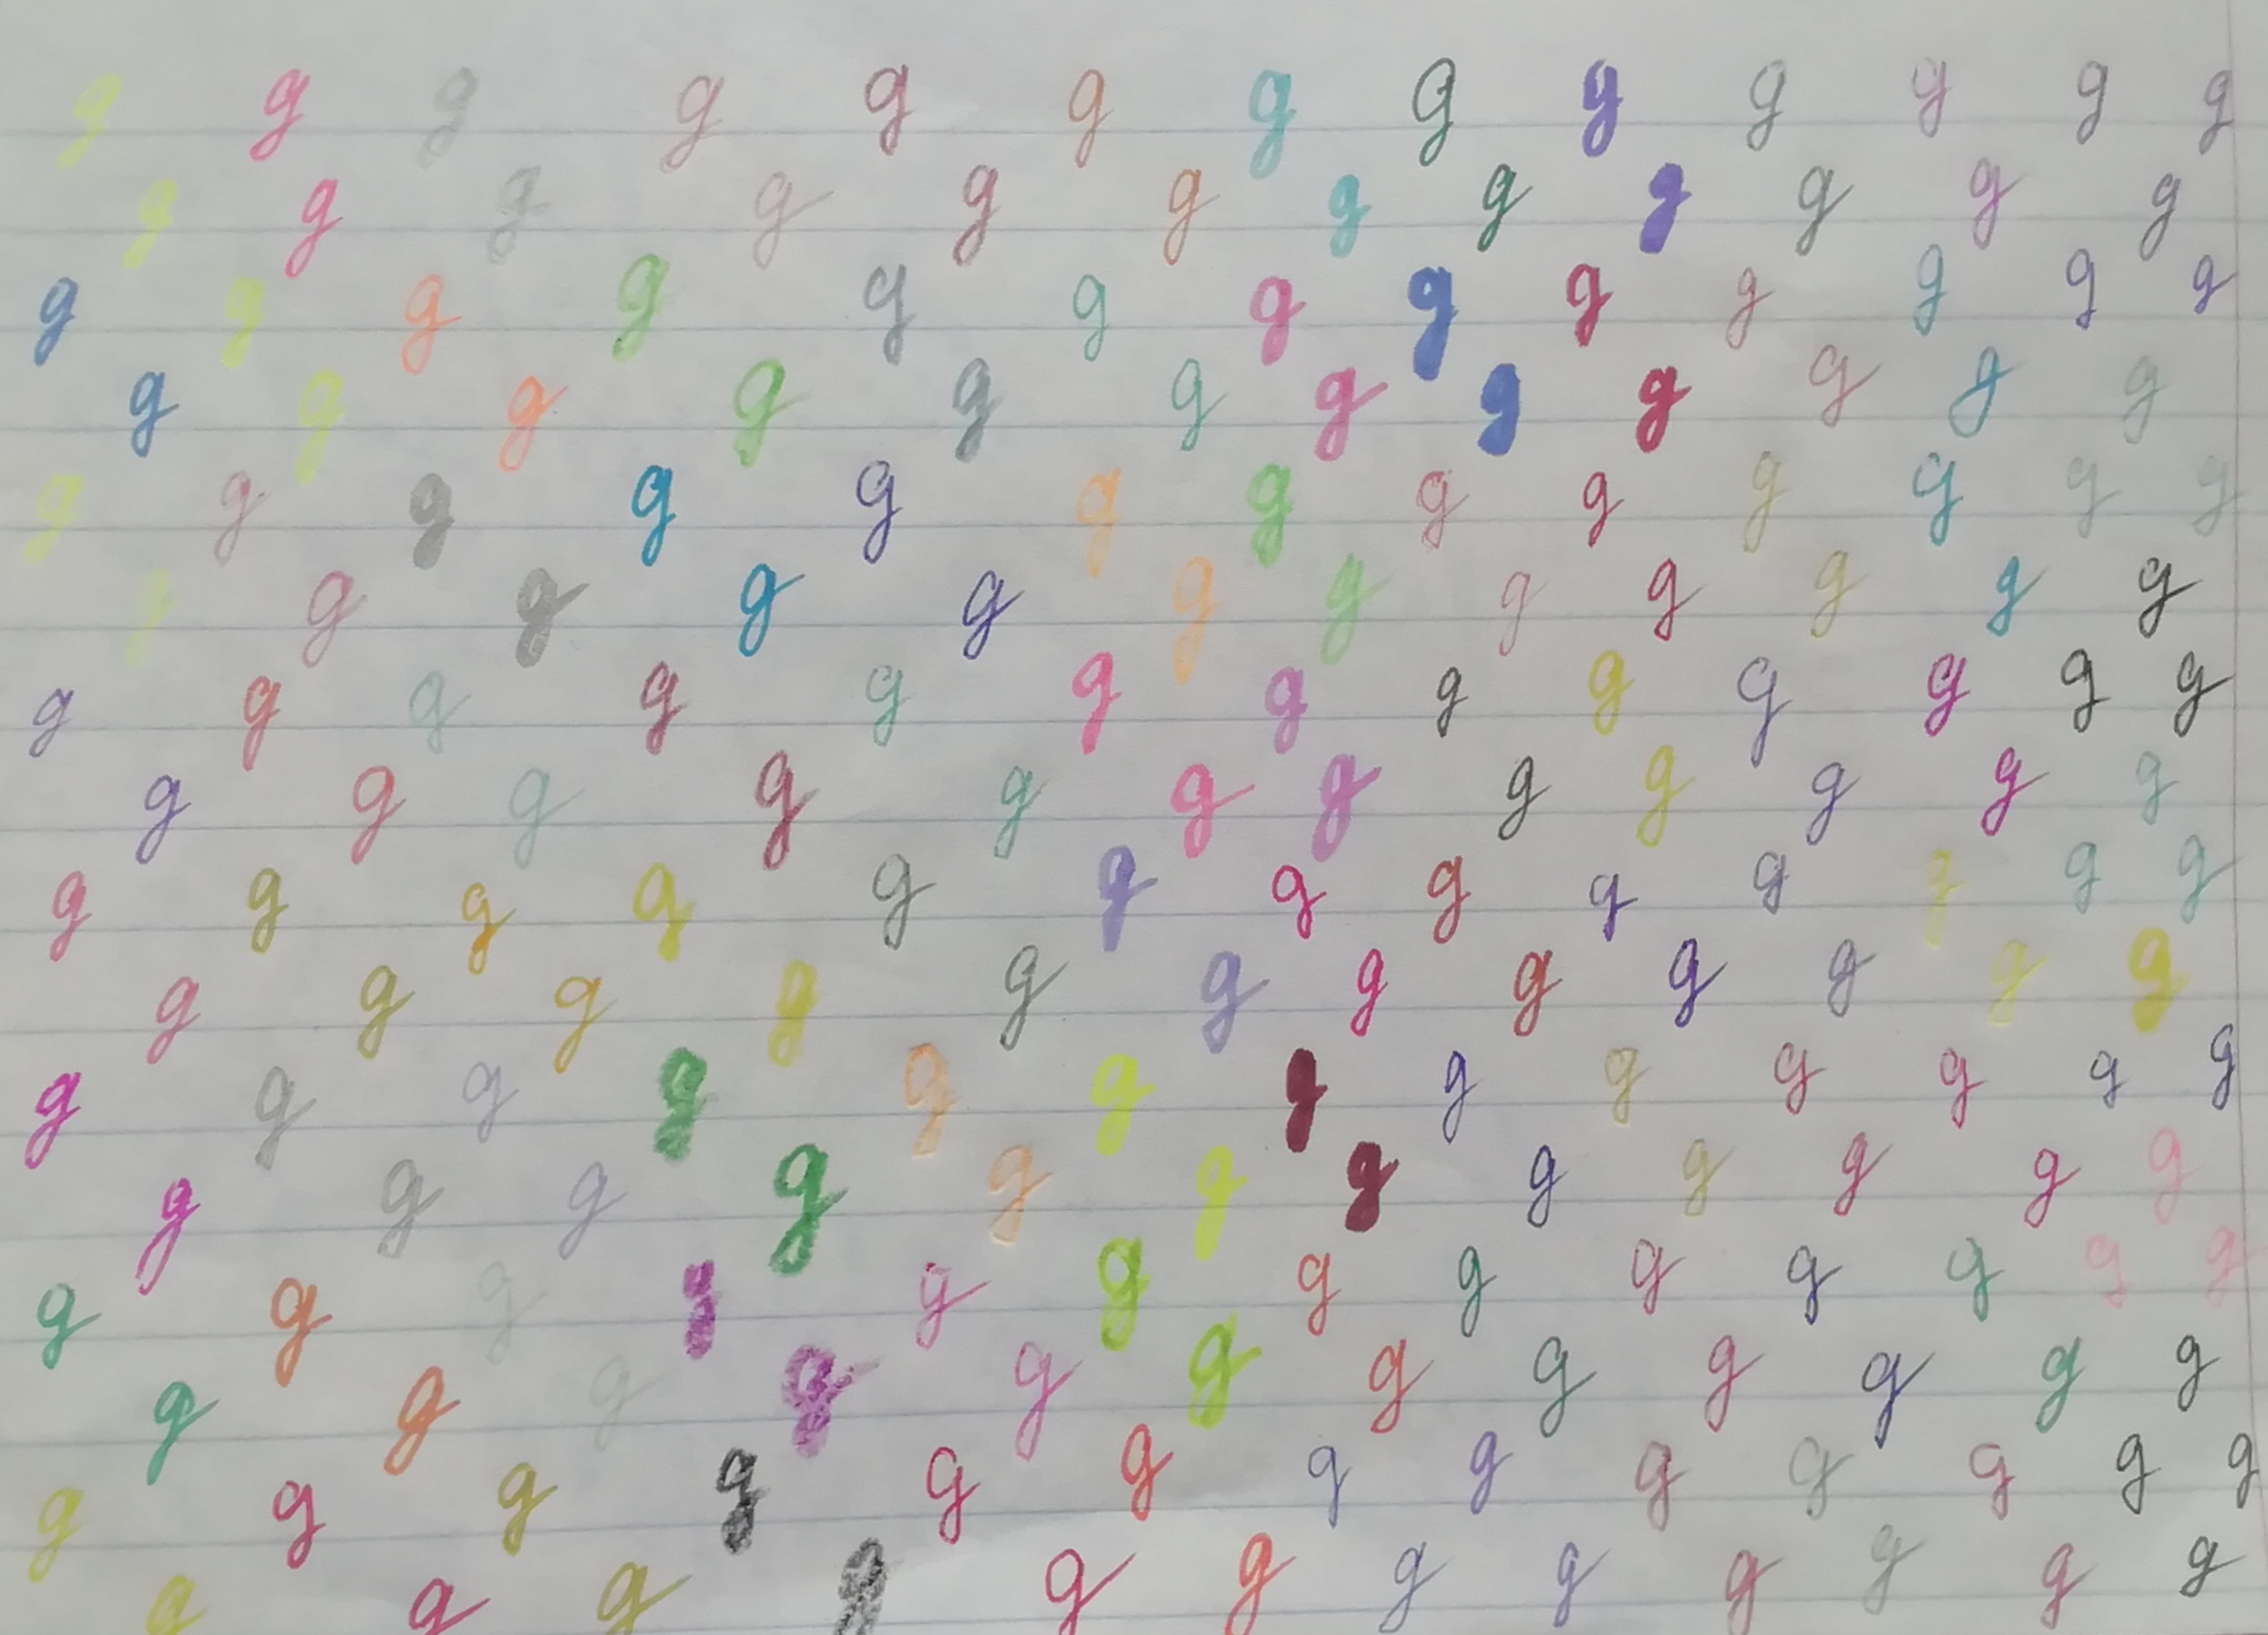 g g g g g g g g g g g g g
g g g g g g g g g g g g
g g g g g g g g g g g g g
g g g g g g g g g g g g
g g g g g g g g g g g g g
g g g g g g g g g g g g
g g g g g g g g g g g g g
g g g g g g g g g g g g
g g g g g g g g g g g g g
g g g g g g g g g g g g
g g g g g g g g g g g g g
g g g g g g g g g g g g
g g g g g g g g g g g g g
g g g g g g g g g g g g
g g g g g g g g g g g g g
g g g g g g g g g g g g